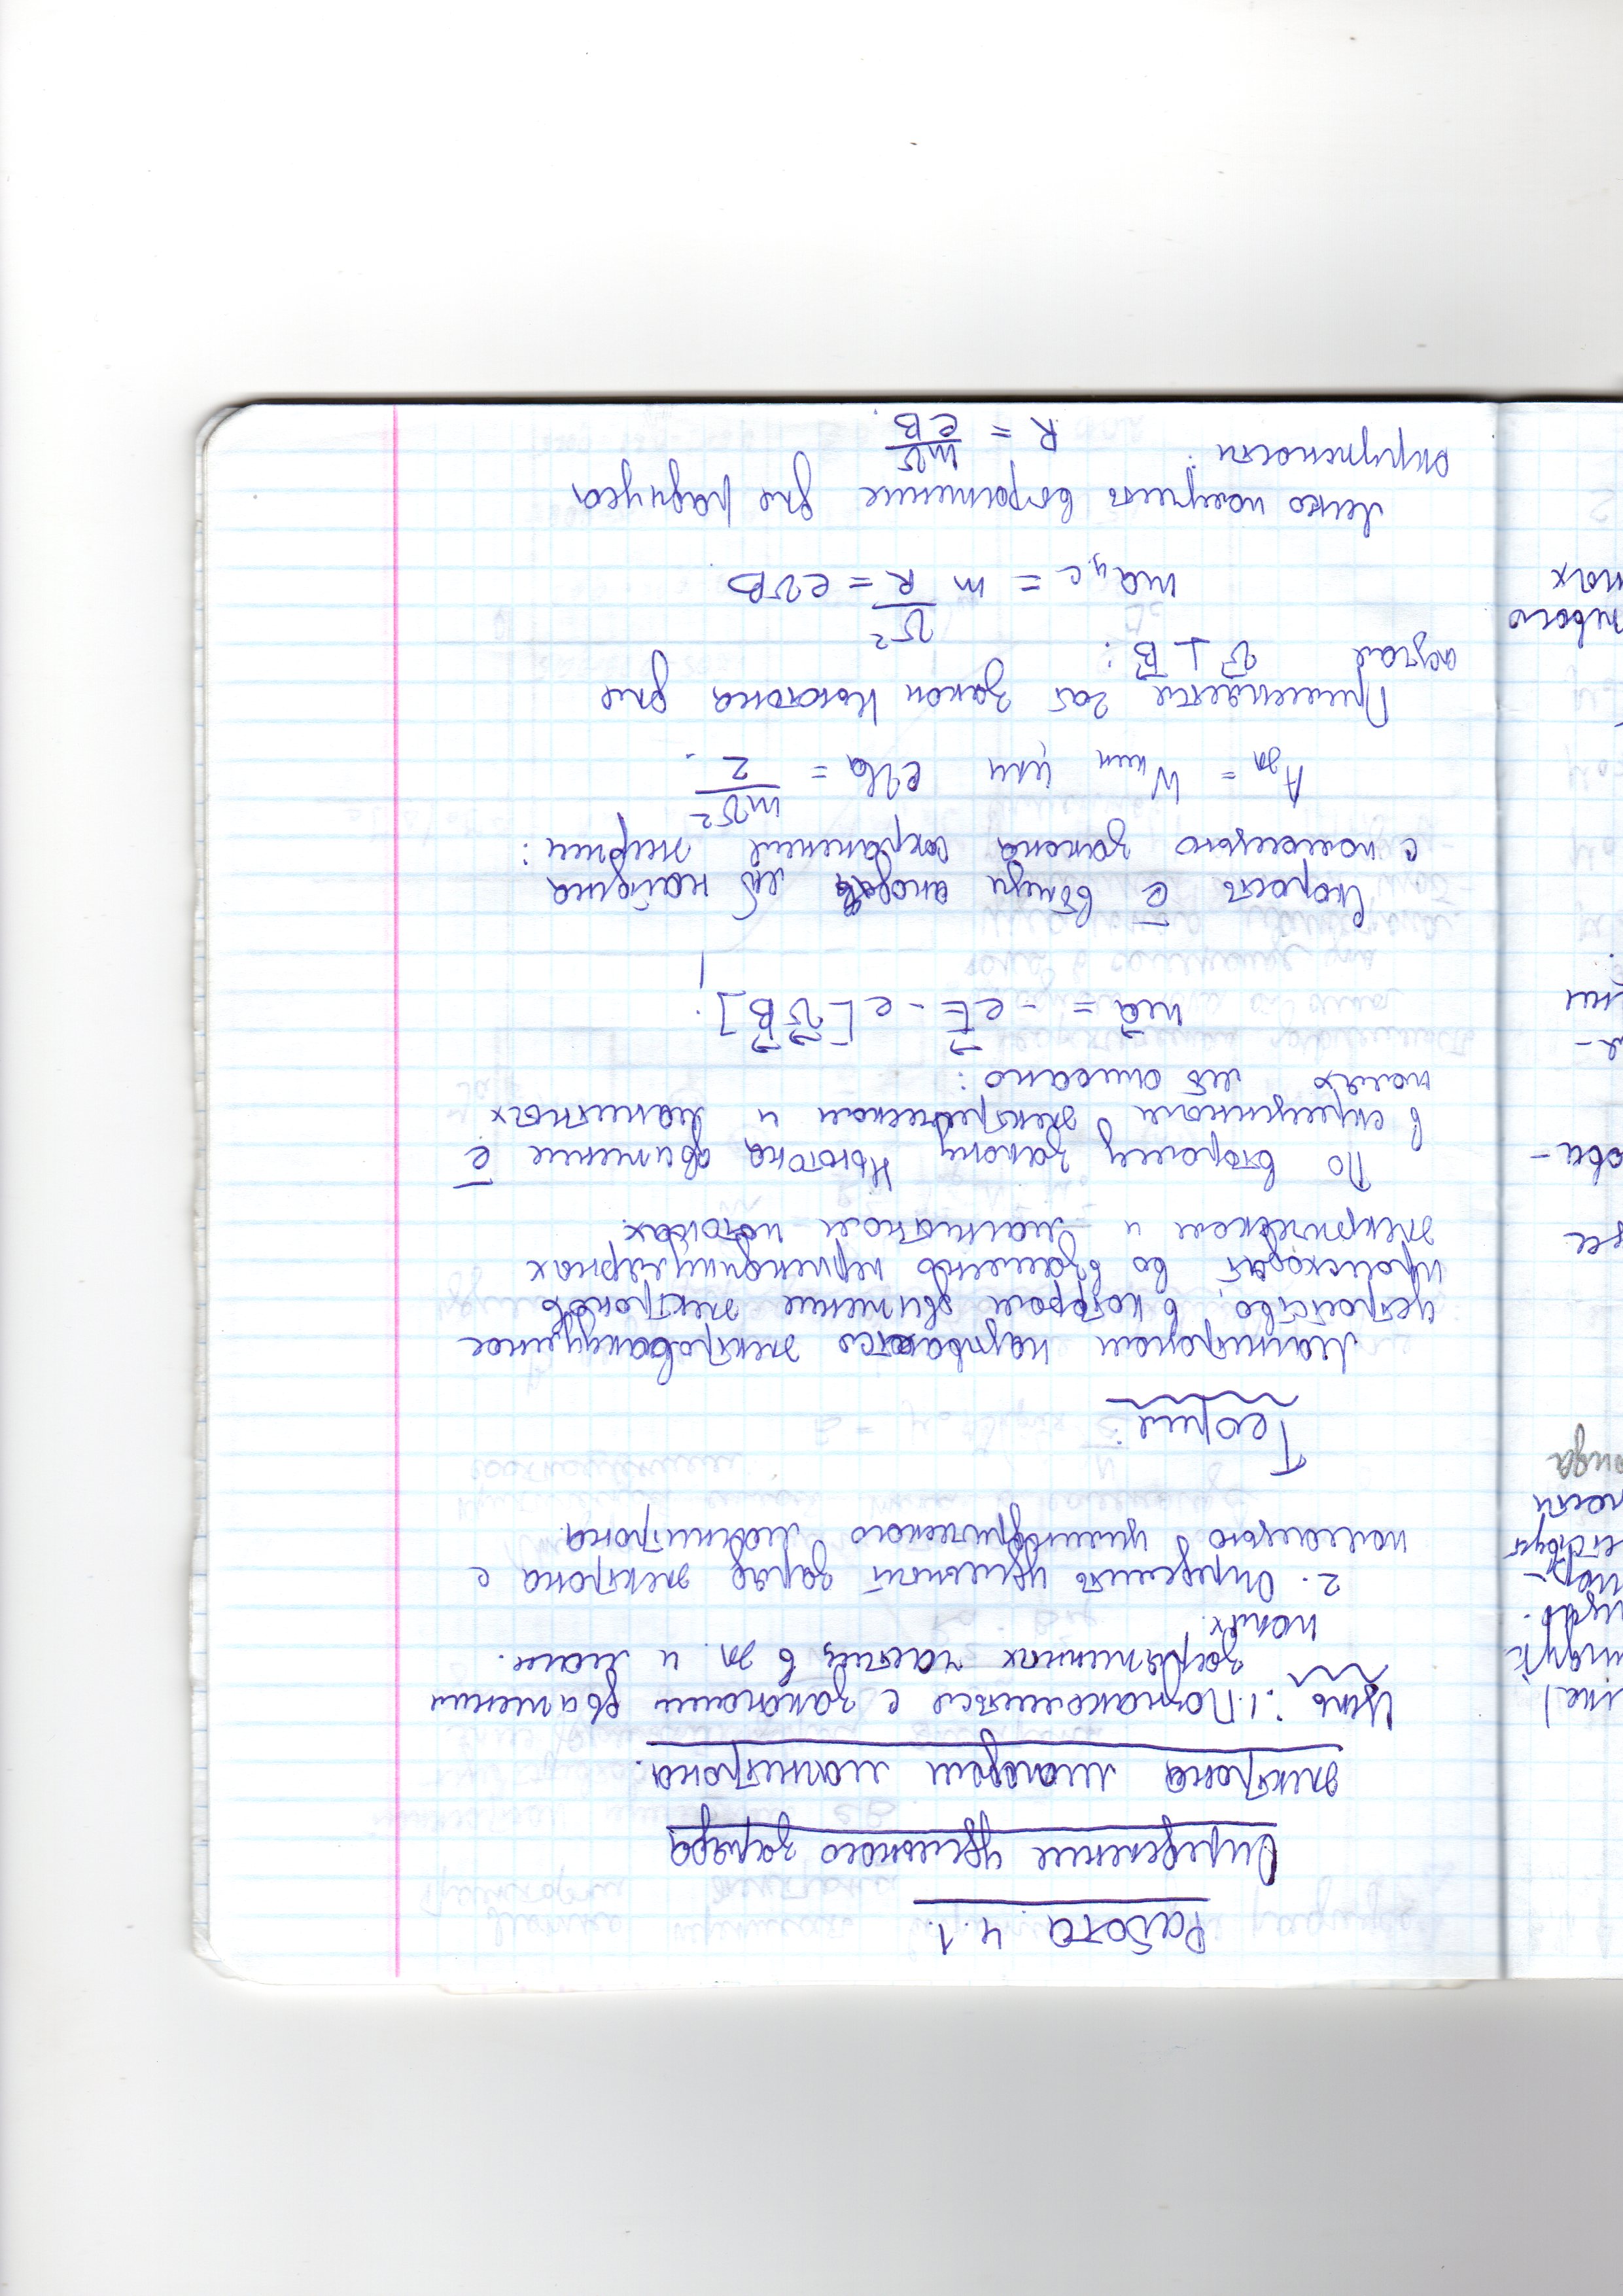 Работа 4.1.
Определение удельного заряда
электрона методом магнетрона.
Цель: 1. Познакомиться с законами движения
заряженных частиц в эл. и магн.
полях.
2. Определить удельный заряд электрона с
помощью цилиндрического магнитрона.
Теория:
Магнитроном называются электровакуумное
устройство, в котором движение электронов
происходят во взаимено перпендикулярных
электрическом и магнитном потоках.
По второму закону Ньютона движение e̅
в скрещенным электрическом и манитных
полях мб описано:
ma⃗ = -eE⃗ - e[v⃗B⃗];
Скорость e̅ вблизи анода мб найдена
с помощью закона сохранения энергии:
Aэл = Wкин или eUa = mv²/2.
Применяется 2ой закон Ньютона для
случая v⃗ ⊥ B⃗:
maц.с = m v²/R = evB.
Легко получить выражение для радиуса
окружности:
R = mv/eB.
етствует
ности
онда
ови-
жевого
ных